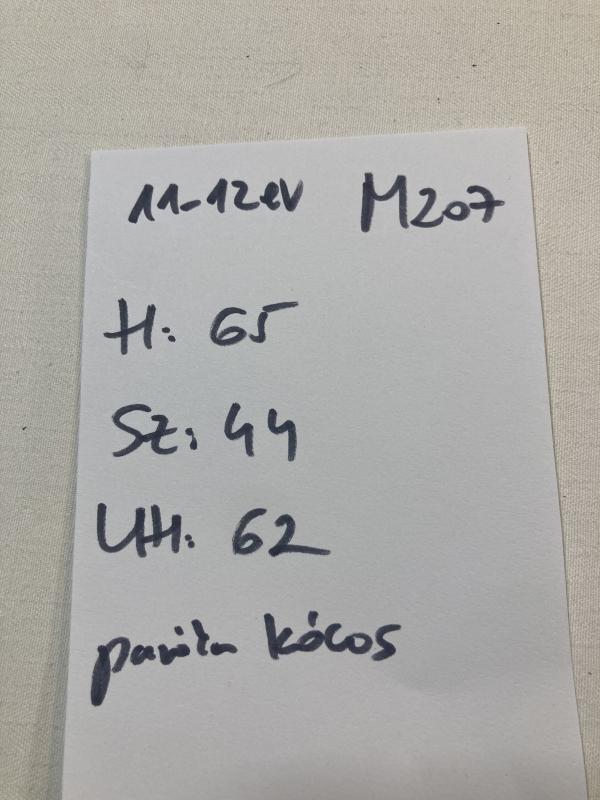 11-12 év M207
H: 65
Sz: 44
UH: 62
kócos